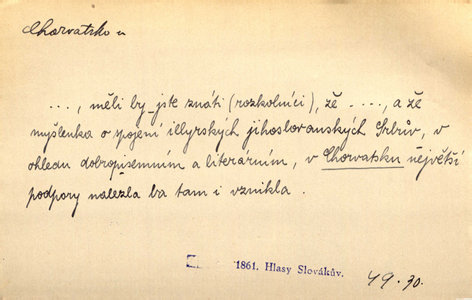 Chorvatsko n
..., měli by jste znáti (rozkolníci), že ...., a že
myšlenka o spojení illyrských jihoslovanských Srbův, v
ohledu dobropisemním a literárním, v Chorvatsku největší
podpory nalezla ba tam i vznikla.
1861. Hlasy Slovákův.
49.30.